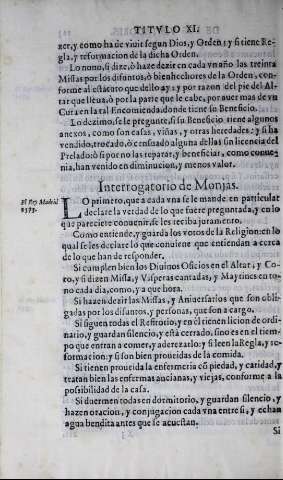 TITVLO XI.
zer, y como ha de viuir segun Dios, y Orden: y si tiene Re-
gla, y reformacion de la dicha Orden.
Lo nono, si dize, ò haze dezir en cada vn año las treinta
Missas por los difuntos, ò bienhechores de la Orden, con-
forme al estatuto que dello ay: y por razon del pie del Al-
tar que lleua, ò por la parte que le cabe, por auer mas de vn
Cura en la tal Encomienda donde tiene su Beneficio.
Lo dezimo, se le pregunte, si su Beneficio tiene algunos
anexos, como son casas, viñas, y otras heredades: y si ha
vendido, trocado, ò censuado alguna dellas sin licencia del
Prelado: ò si por no las reparar, y beneficiar, como conue-
nia, han venido en diminucion, y menos valor.
Interrogatorio de Monjas.
El Rey Madrid
1595.
LO primero, que a cada vna se le mande en particular
declare la verdad de lo que fuere preguntada, y en lo
que pareciere conuenir, se les reciba juramento.
Como entiende, y guarda los votos de la Religion: en lo
qual se les declare lo que conuiene que entiendan a cerca
de lo que han de responder.
Si cumplen bien los Diuinos Oficios en el Altar, y Co-
ro, y si dizen Missa, y Visperas cantadas, y Maytines en to-
no cada dia, como, y a que hora.
Si hazen dezir las Missas, y Aniuersarios que son obli-
gadas por los difuntos, y personas, que son a cargo.
Si siguen todas el Refitorio, y en èl tienen licion de ordi-
nario, y guardan silencio, y està cerrado, sino es en el tiem-
po que entran a comer, y aderezarlo: y si leen la Regla, y re-
formacion: y si son bien proueidas de la comida.
Si tienen proueida la enfermeria cõ piedad, y caridad, y
tratan bien las enfermas ancianas, y viejas, conforme a la
possibilidad de la casa.
Si duermen todas en dormitorio, y guardan silencio, y
hazen oracion, y conjugacion cada vna entre si, y echan
agua bendita antes que se acuestan.
Si